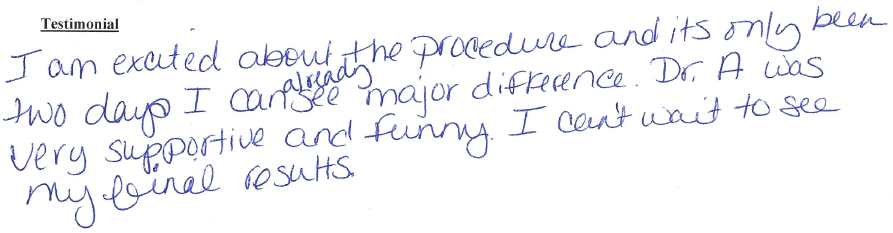 Testimonial
I am excited about the procedure and its only been
two days I can already see major difference. Dr. A was
very supportive and funny. I can't wait to see
my final results.